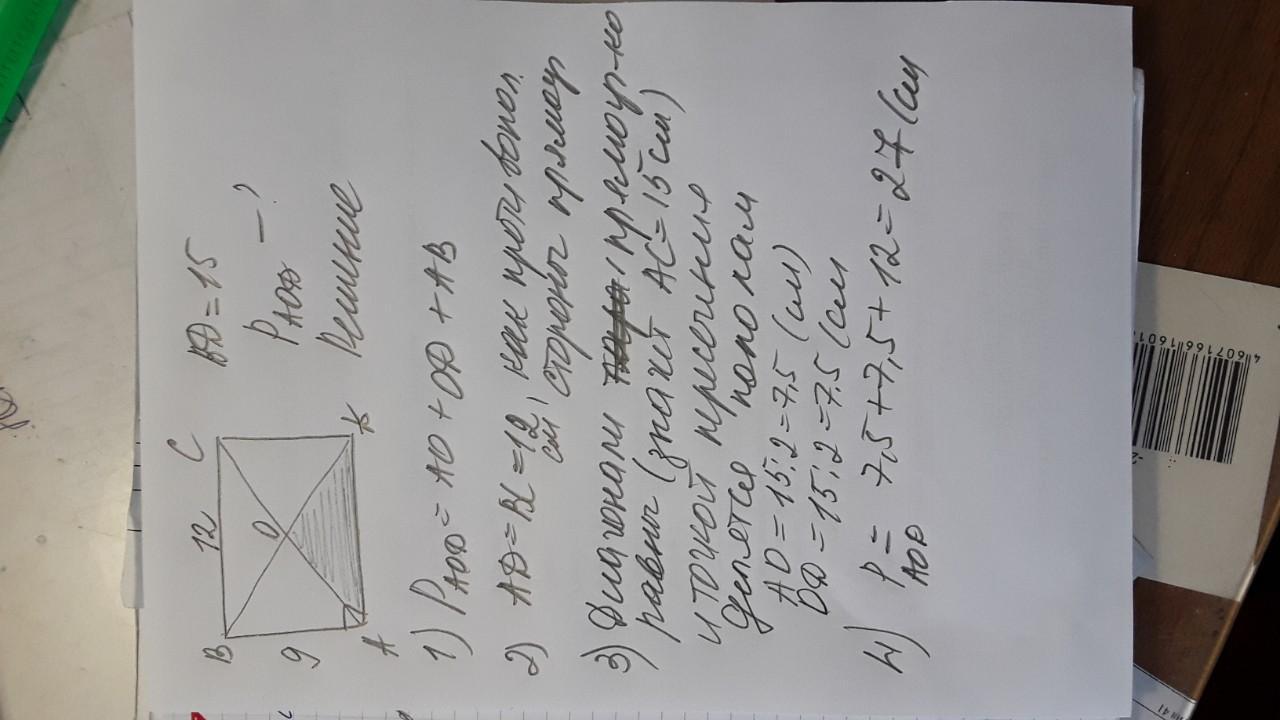 B 12 C
BD = 15
O
9
P AOD — ?
A
Решение
1) P AOD = AO + OD + AB
2) AD = BC = 12 см, как противопол.
стороны прямоуг
3) Диагонали прямоуг-ко
равны (значит AC = 15 см)
и точкой пересечения
делятся пополам
AO = 15:2 = 7,5 (см)
DO = 15:2 = 7.5 (см
4) P AOD = 7,5 + 7,5 + 12 = 27 (см